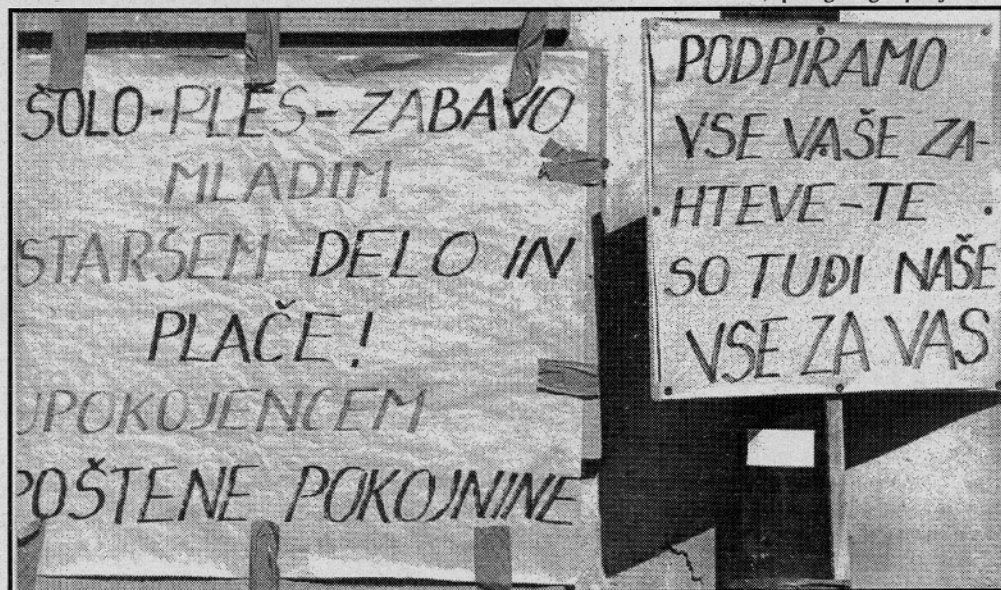 ŠOLO-PLES-ZABAVO
MLADIM
STARŠEM DELO IN
PLAČE!
UPOKOJENCEM
POŠTENE POKOJNINE
PODPIRAMO
VSE VAŠE ZA-
HTEVE-TE
SO TUDI NAŠE
VSE ZA VAS